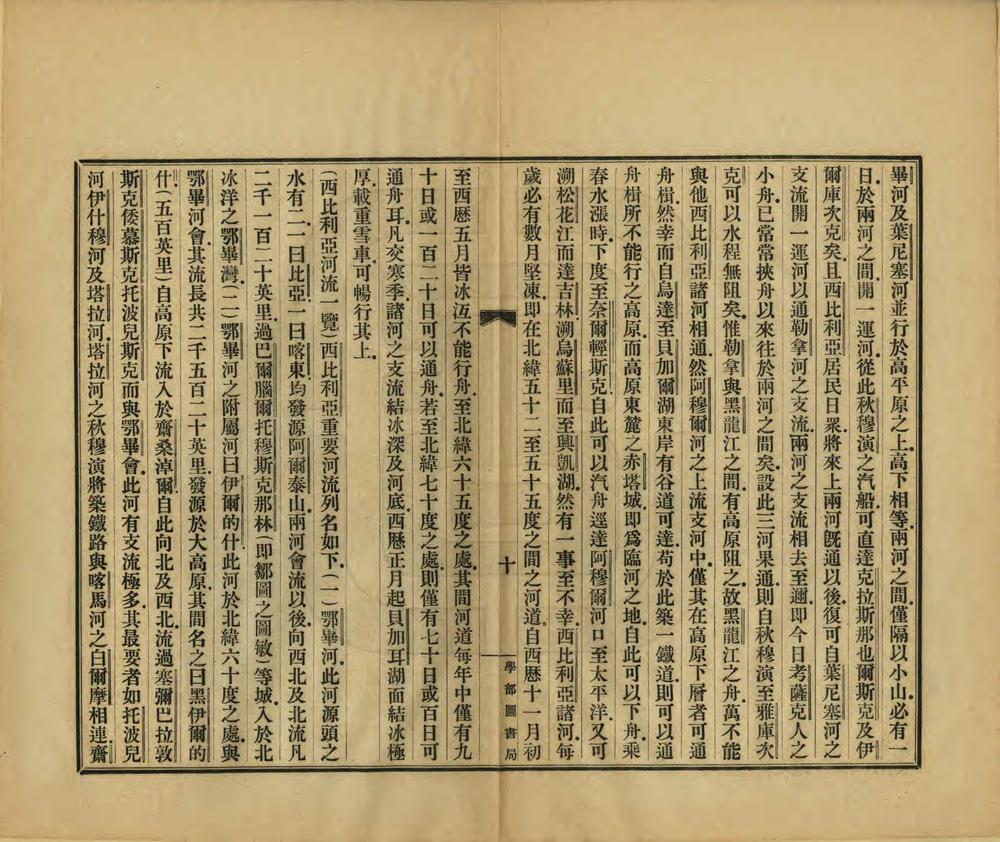 畢河及葉尼塞河並行於高平原之上高下相等兩河之間僅隔以小山必有一
日於兩河之間開一運河從此秋穆演之汽船可直達克拉斯那也爾斯克及伊
爾庫次克矣且西比利亞居民日衆將來上兩河旣通以後復可自葉尼塞河之
支流開一運河以通勒拿河之支流兩河之支流相去至邇即今日考薩克人之
小舟已常常挾舟以來往於兩河之間矣設此三河果通則自秋穆演至雅庫次
克可以水程無阻矣惟勒拿與黑龍江之間有高原阻之故黑龍江之舟萬不能
與他西比利亞諸河相通然阿穆爾河之上流支河中僅其在高原下層者可通
舟楫然幸而自烏達至貝加爾湖東岸有谷道可達苟於此築一鐵道則可以通
舟楫所不能行之高原而高原東麓之赤塔城即爲臨河之地自此可以下舟乘
春水漲時下度至奈爾輕斯克自此可以汽舟逕達阿穆爾河口至太平洋又可
溯松花江而達吉林溯烏蘇里而至興凱湖然有一事至不幸西比利亞諸河每
歲必有數月堅凍即在北緯五十二至五十五度之間之河道自西曆十一月初
十
學部圖書局
至西曆五月皆冰沍不能行舟至北緯六十五度之處其間河道每年中僅有九
十日或一百二十日可以通舟若至北緯七十度之處則僅有七十日或百日可
通舟耳凡交寒季諸河之支流結冰深及河底西曆正月起貝加耳湖面結冰極
厚載重雪車可暢行其上
(西比利亞河流一覽)西比利亞重要河流列名如下(一)鄂畢河此河源頭之
水有二一曰比亞一曰喀東均發源阿爾泰山兩河會流以後向西北及北流凡
二千一百二十英里過巴爾腦爾托穆斯克那林(即鄒圖之圖敏)等城入於北
冰洋之鄂畢灣(二)鄂畢河之附屬河曰伊爾的什此河於北緯六十度之處與
鄂畢河會其流長共二千五百二十英里發源於大高原其間名之曰黑伊爾的
什(五百英里)自高原下流入於齋桑淖爾自此向北及西北流過塞彌巴拉敦
斯克倭慕斯克托波兒斯克而與鄂畢會此河有支流極多其最要者如托波兒
河伊什穆河及塔拉河塔拉河之秋穆演將築鐵路與喀馬河之白爾摩相連齋